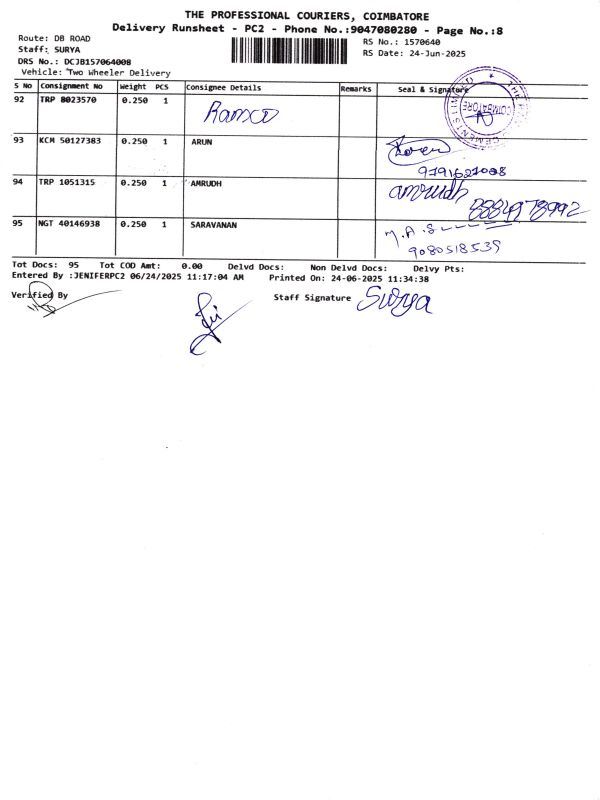 THE PROFESSIONAL COURIERS, COIMBATORE
Delivery Runsheet - PC2 - Phone No.:9047080280 - Page No.:8
Route: DB ROAD
RS No.: 1570640
Staff: SURYA
RS Date: 24-Jun-2025
DRS No.: DCJB157064008
Vehicle: Two Wheeler Delivery
S No Consignment No Weight PCS Consignee Details Remarks Seal & Signature
92 TRP 8023570 0.250 1 Ramco
COIMBATORE
93 KCM 50127383 0.250 1 ARUN
9791627008
94 TRP 1051315 0.250 1 AMRUDH amrudh
8884978992
95 NGT 40146938 0.250 1 SARAVANAN
9080518539
Tot Docs: 95 Tot COD Amt: 0.00 Delvd Docs: Non Delvd Docs: Delvy Pts:
Entered By :JENIFERPC2 06/24/2025 11:17:04 AM Printed On: 24-06-2025 11:34:38
Verified By
Staff Signature Surya